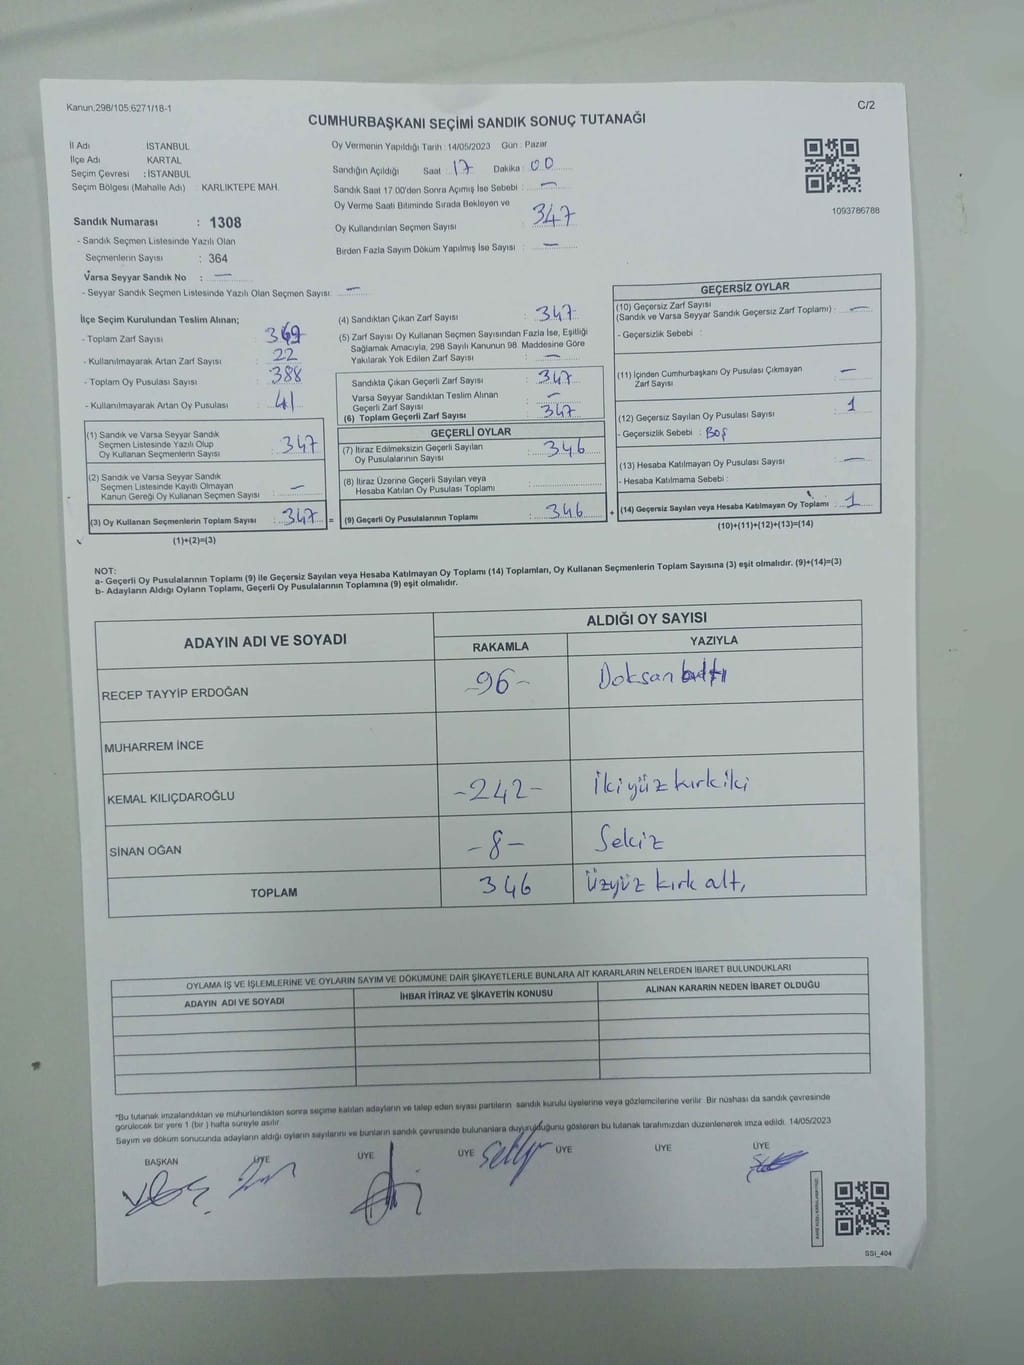 Kanun:298/105.6271/18-1
C/2
CUMHURBAŞKANI SEÇİMİ SANDIK SONUÇ TUTANAĞI
İl Adı İSTANBUL
İlçe Adı KARTAL
Seçim Çevresi : İSTANBUL
Seçim Bölgesi (Mahalle Adı) : KARLIKTEPE MAH.
Sandık Numarası : 1308
- Sandık Seçmen Listesinde Yazılı Olan
Seçmenlerin Sayısı : 364
Varsa Seyyar Sandık No : —
- Seyyar Sandık Seçmen Listesinde Yazılı Olan Seçmen Sayısı: —
Oy Vermenin Yapıldığı Tarih : 14/05/2023 Gün : Pazar
Sandığın Açıldığı Saat : 17 Dakika : 00
Sandık Saat 17.00'den Sonra Açımış İse Sebebi : —
Oy Verme Saati Bitiminde Sırada Bekleyen ve
Oy Kullandırılan Seçmen Sayısı : 347
Birden Fazla Sayım Döküm Yapılmış İse Sayısı : —
1093786788
İlçe Seçim Kurulundan Teslim Alınan;
- Toplam Zarf Sayısı : 369
- Kullanılmayarak Artan Zarf Sayısı : 22
- Toplam Oy Pusulası Sayısı : 388
- Kullanılmayarak Artan Oy Pusulası : 41
(1) Sandık ve Varsa Seyyar Sandık
Seçmen Listesinde Yazılı Olup
Oy Kullanan Seçmenlerin Sayısı : 347
(2) Sandık ve Varsa Seyyar Sandık
Seçmen Listesinde Kayıtlı Olmayan
Kanun Gereği Oy Kullanan Seçmen Sayısı : —
(3) Oy Kullanan Seçmenlerin Toplam Sayısı : 347 =
(1)+(2)=(3)
(4) Sandıktan Çıkan Zarf Sayısı : 347
(5) Zarf Sayısı Oy Kullanan Seçmen Sayısından Fazla İse, Eşitliği
Sağlamak Amacıyla, 298 Sayılı Kanunun 98. Maddesine Göre
Yakılarak Yok Edilen Zarf Sayısı : —
Sandıkta Çıkan Geçerli Zarf Sayısı : 347
Varsa Seyyar Sandıktan Teslim Alınan
Geçerli Zarf Sayısı : —
(6) Toplam Geçerli Zarf Sayısı : 347
GEÇERLİ OYLAR
(7) İtiraz Edilmeksizin Geçerli Sayılan
Oy Pusulalarının Sayısı : 346
(8) İtiraz Üzerine Geçerli Sayılan veya
Hesaba Katılan Oy Pusulası Toplamı :
(9) Geçerli Oy Pusulalarının Toplamı : 346 +
GEÇERSİZ OYLAR
(10) Geçersiz Zarf Sayısı
(Sandık ve Varsa Seyyar Sandık Geçersiz Zarf Toplamı) : —
- Geçersizlik Sebebi :
(11) İçinden Cumhurbaşkanı Oy Pusulası Çıkmayan
Zarf Sayısı : —
(12) Geçersiz Sayılan Oy Pusulası Sayısı : 1
- Geçersizlik Sebebi : Boş
(13) Hesaba Katılmayan Oy Pusulası Sayısı : —
- Hesaba Katılmama Sebebi :
(14) Geçersiz Sayılan veya Hesaba Katılmayan Oy Toplamı : 1
(10)+(11)+(12)+(13)=(14)
NOT:
a- Geçerli Oy Pusulalarının Toplamı (9) ile Geçersiz Sayılan veya Hesaba Katılmayan Oy Toplamı (14) Toplamları, Oy Kullanan Seçmenlerin Toplam Sayısına (3) eşit olmalıdır. (9)+(14)=(3)
b- Adayların Aldığı Oyların Toplamı, Geçerli Oy Pusulalarının Toplamına (9) eşit olmalıdır.
ADAYIN ADI VE SOYADI ALDIĞI OY SAYISI
RAKAMLA YAZIYLA
RECEP TAYYİP ERDOĞAN -96- Doksan altı
MUHARREM İNCE
KEMAL KILIÇDAROĞLU -242- İkiyüz kırkiki
SİNAN OĞAN -8- Sekiz
TOPLAM 346 Üzyüz kırk altı
OYLAMA İŞ VE İŞLEMLERİNE VE OYLARIN SAYIM VE DÖKÜMÜNE DAİR ŞİKAYETLERLE BUNLARA AİT KARARLARIN NELERDEN İBARET BULUNDUKLARI
ADAYIN ADI VE SOYADI İHBAR İTİRAZ VE ŞİKAYETİN KONUSU ALINAN KARARIN NEDEN İBARET OLDUĞU
*Bu tutanak imzalandıktan ve mühürlendikten sonra seçime katılan adayların ve talep eden siyasi partilerin sandık kurulu üyelerine veya gözlemcilerine verilir. Bir nüshası da sandık çevresinde
görülecek bir yere 1 (bir ) hafta süreyle asılır.
Sayım ve döküm sonucunda adayların aldığı oyların sayılarını ve bunların sandık çevresinde bulunanlara duyurulduğunu gösteren bu tutanak tarafımızdan düzenlenerek imza edildi. 14/05/2023
BAŞKAN ÜYE ÜYE ÜYE ÜYE ÜYE ÜYE
SSI_404